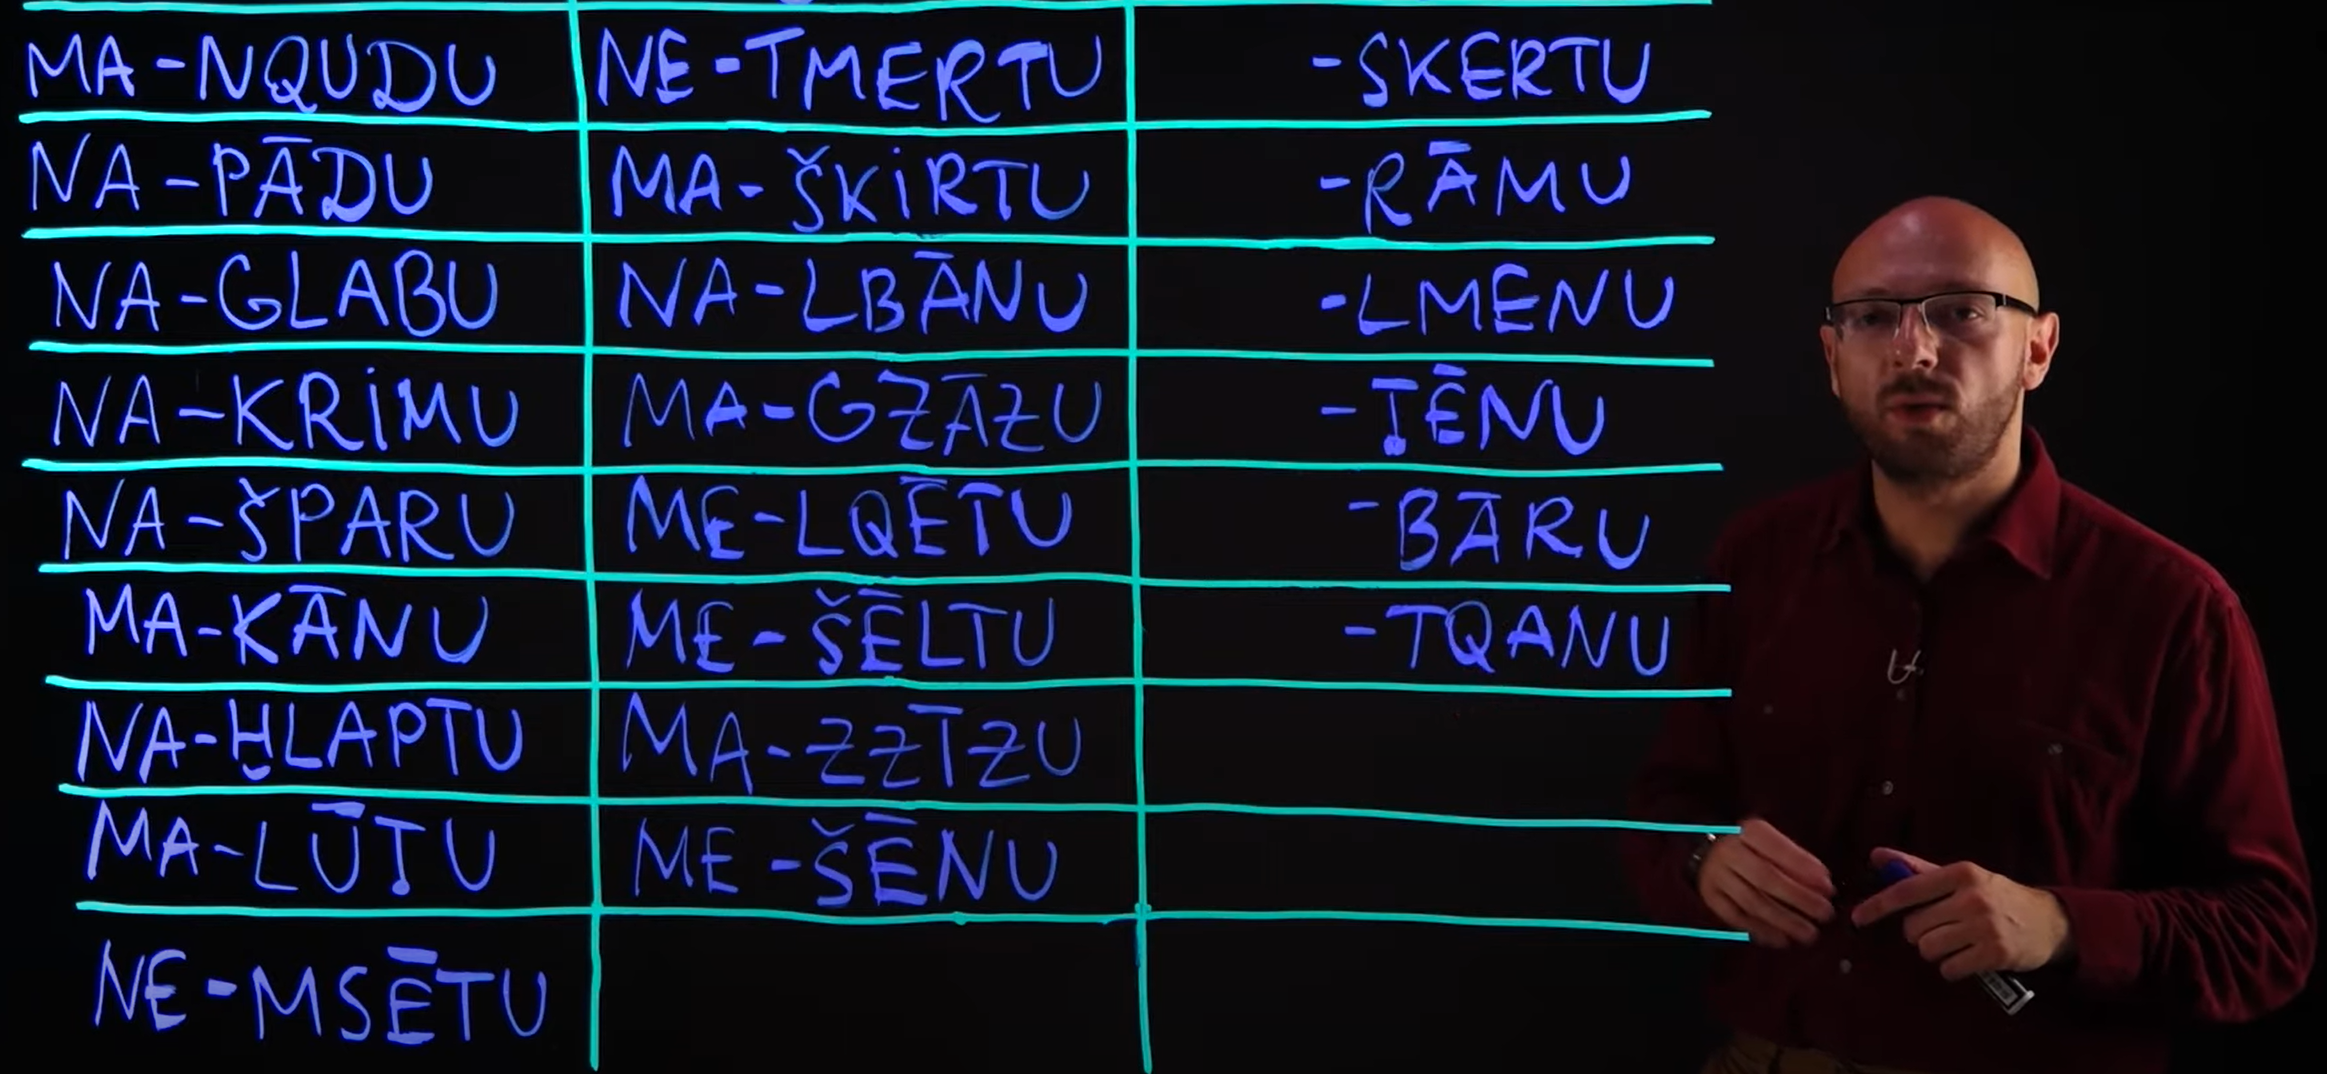 MA-NQUDU NE-TMERTU -SKERTU
NA-PĀDU MA-ŠKiRTU -RĀMU
NA-GLABU NA-LBĀNU -LMENU
NA-KRiMU MA-GZĀZU -ṬĒNU
NA-ŠPARU ME-LQĒTU -BĀRU
MA-KĀNU ME-ŠĒLTU -TQANU
NA-ḪLAPTU MA-ZZĪZU
MA-LŪṬU ME-ŠĒNU
NE-MSĒTU